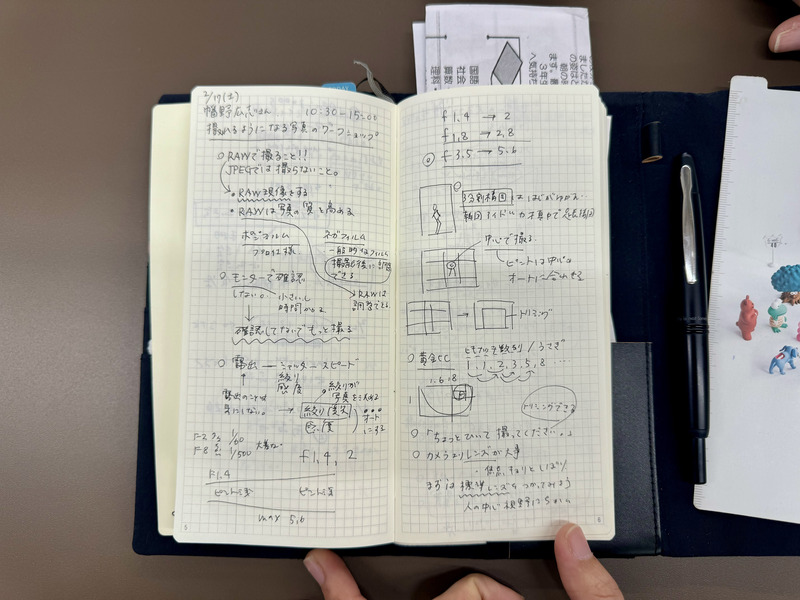 2/17(土)
幡野広志さん 10:30-15:00
撮れるようになる写真のワークショップ。
○RAWで撮ること!!
JPEGでは撮らないこと。
・RAW現像をする
・RAWは写真の質を高める
ポジフィルム ネガフィルム
プロ仕様 一般的なフィルム
撮影後に調整できる
→RAWは調整できる。
○モニターで確認
しない。 小さいし
時間かかる
確認してないでもっと撮る
○露出 — シャッタースピード
絞り
感度
露出のことは
気にしない。
絞りが
写真を決める
絞り優先
感度
オート
にする
F2 1/60
F8 1/500
f1,4, 2
F1.4
ピント浅 ピント深
max 5,6
5
f1,4 → 2
f1,8 → 2,8
f3.5 → 5,6
3分割構図は
中心で撮る
ピントは中心
オートに合わせる
トリミング
○黄金比
1, 1, 2, 3, 5, 8
1.618
1
トリミングできる
○「ちょっとひいて撮ってください。」
○カメラよりレンズが大事
・焦点きょりとしぼり
まずは標準レンズをつかってみよう
6
国語
社会
算数
理科